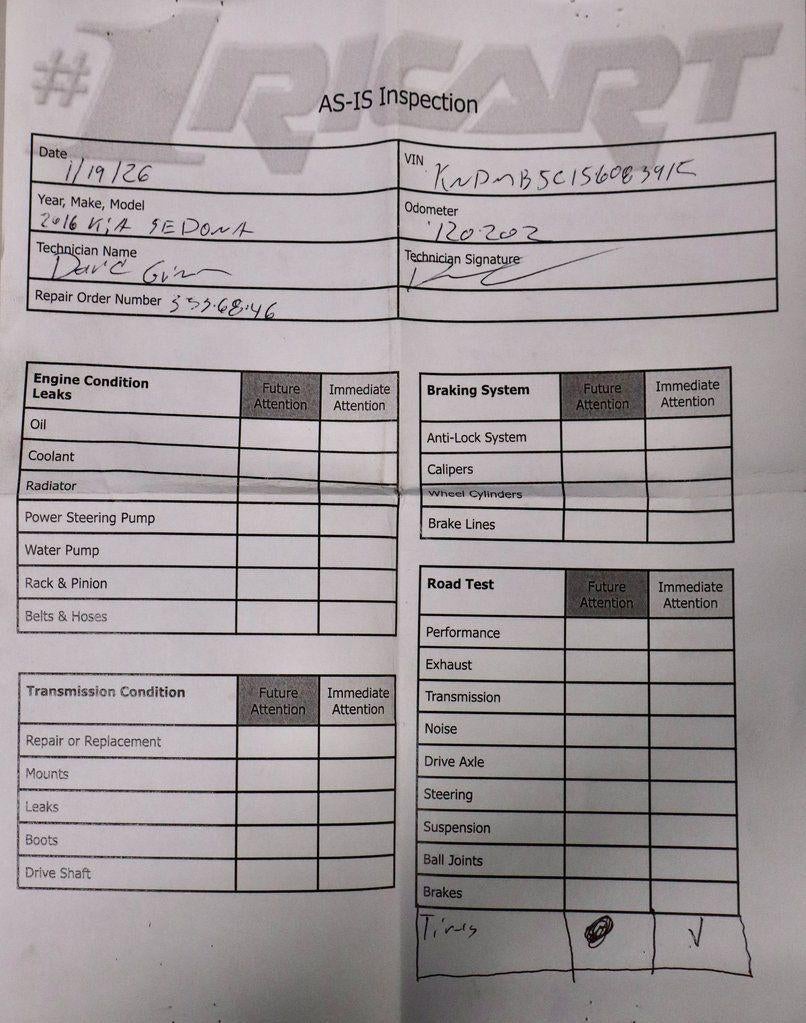 #1 RICART
AS-IS Inspection
Date 1/19/26
VIN KNDMB5C1S6083915
Year, Make, Model 2016 KIA SEDONA
Odometer 120202
Technician Name David
Technician Signature
Repair Order Number 353-68-46
Engine Condition Leaks Future Attention Immediate Attention
Oil
Coolant
Radiator
Power Steering Pump
Water Pump
Rack & Pinion
Belts & Hoses
Transmission Condition Future Attention Immediate Attention
Repair or Replacement
Mounts
Leaks
Boots
Drive Shaft
Braking System Future Attention Immediate Attention
Anti-Lock System
Calipers
Wheel Cylinders
Brake Lines
Road Test Future Attention Immediate Attention
Performance
Exhaust
Transmission
Noise
Drive Axle
Steering
Suspension
Ball Joints
Brakes
Tires ✓